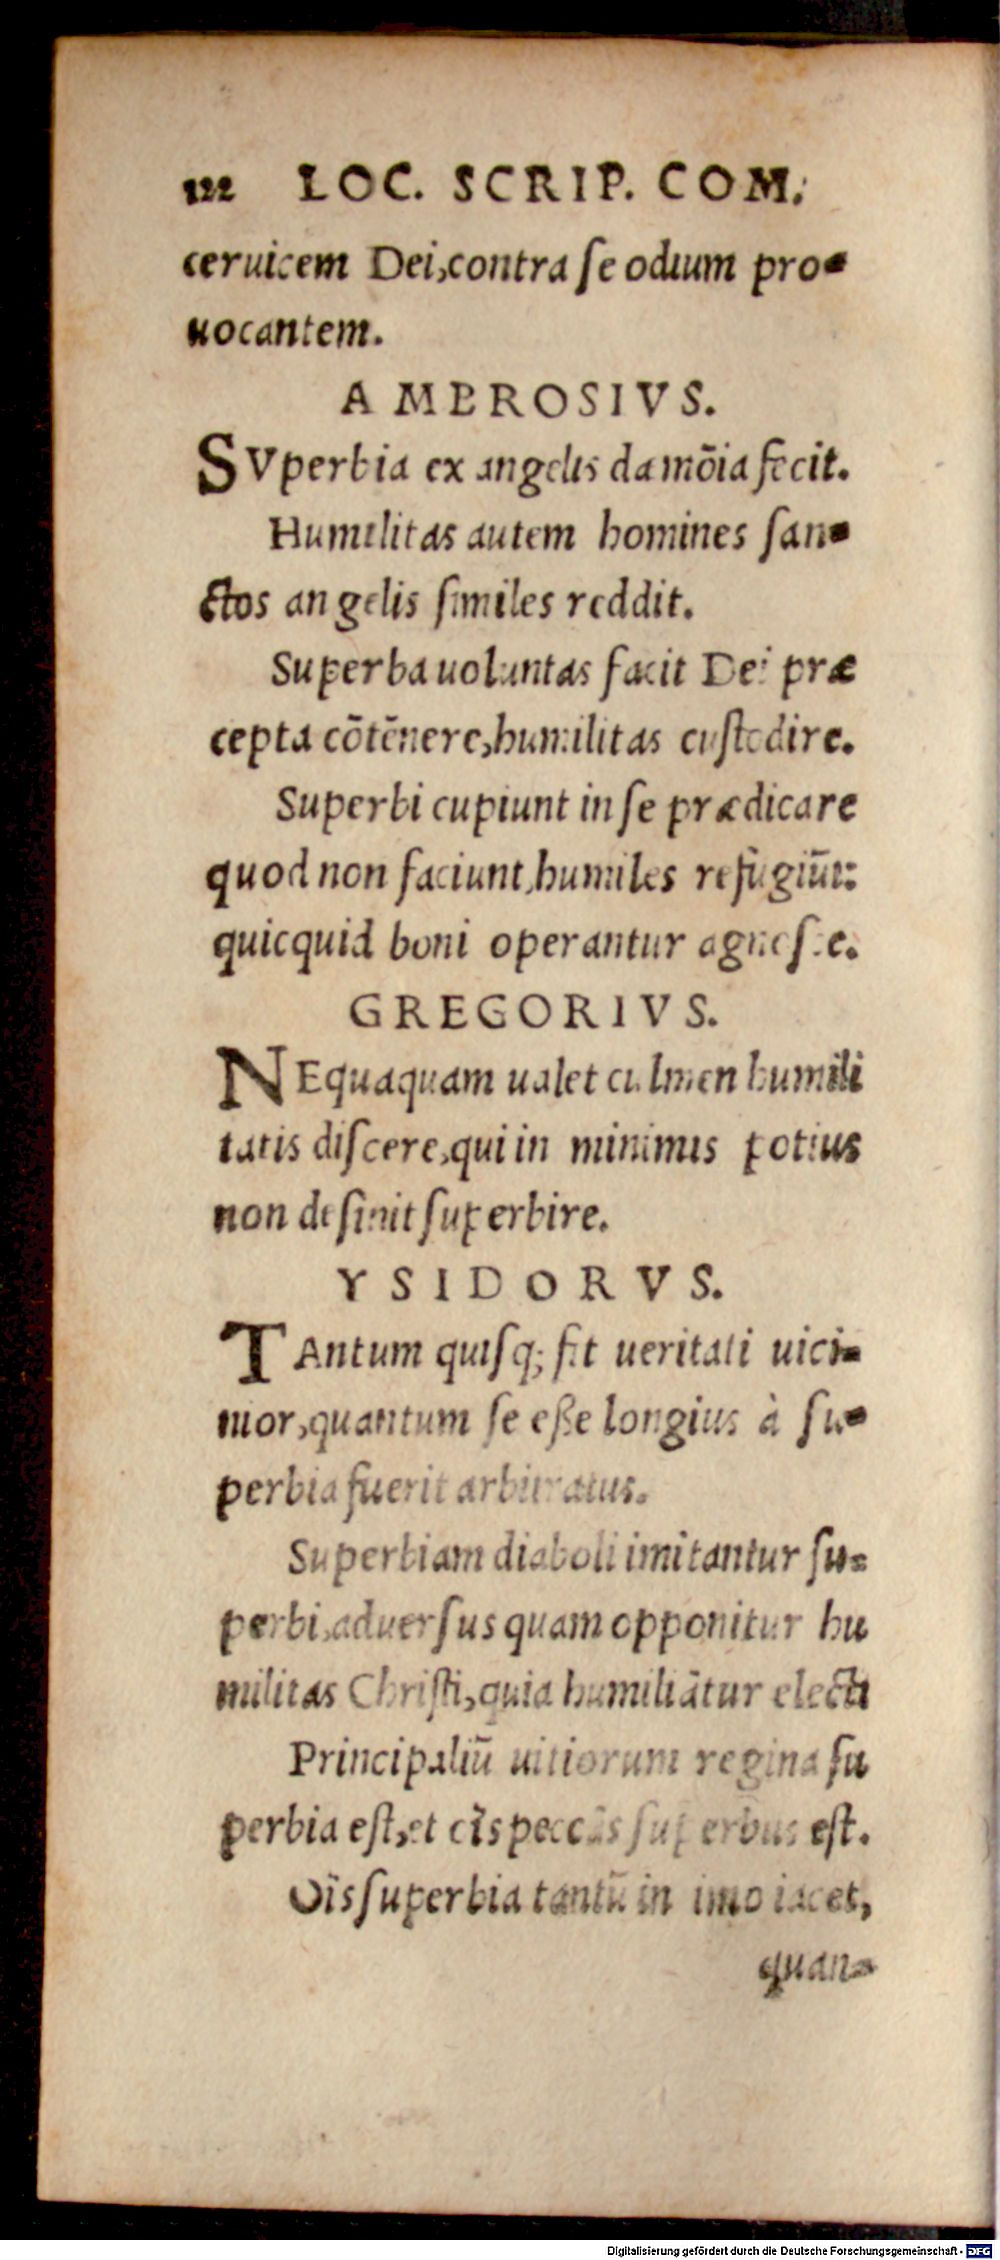 122 LOC. SCRIP. COM.
ceruicem Dei, contra se odium pro-
uocantem.
AMBROSIVS.
SVperbia ex angelis dæmōia fecit.
Humilitas autem homines san-
ctos angelis similes reddit.
Superba uoluntas facit Dei præ
cepta cōtēnere, humilitas custodire.
Superbi cupiunt in se prædicare
quod non faciunt, humiles refugiūt:
quicquid boni operantur agnosce.
GREGORIVS.
NEquaquam ualet culmen humili
tatis discere, qui in minimis potius
non desinit superbire.
YSIDORVS.
TAntum quisq; fit ueritati uici-
nior, quantum se eße longius à su-
perbia fuerit arbitratus.
Superbiam diaboli imitantur su-
perbi, aduersus quam opponitur hu
militas Christi, quia humiliātur electi
Principaliū uitiorum regina su
perbia est, et oīs peccās superbus est.
Oīs superbia tantū in imo iacet,
quan-
Digitalisierung gefördert durch die Deutsche Forschungsgemeinschaft - DFG